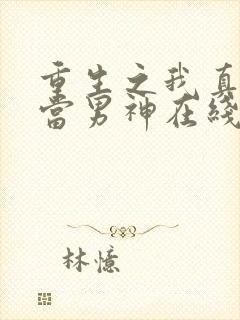 重生之我真
當男神在綫
林憶